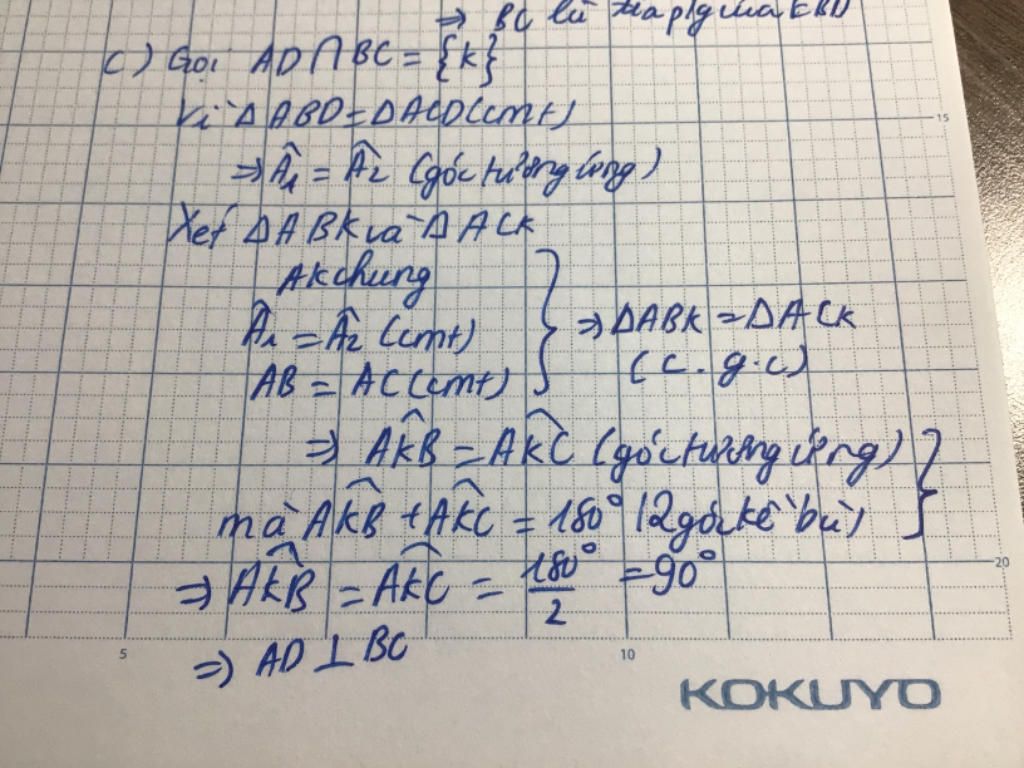 ⇒ BC là tia p/g của EBD
c) Gọi AD ∩ BC = {K}
Vì ΔABD = ΔACD (cmt)
⇒ Â₁ = Â₂ (góc tương ứng)
Xét ΔABK và ΔACK
AK chung
Â₁ = Â₂ (cmt)
AB = AC (cmt)
⇒ ΔABK = ΔACK
(c.g.c)
⇒ AK̂B = AK̂C (góc tương ứng)
mà AK̂B + AK̂C = 180° (2 góc kề bù)
⇒ AK̂B = AK̂C = 180°/2 = 90°
⇒ AD ⊥ BC
15
20
5 10
KOKUYO